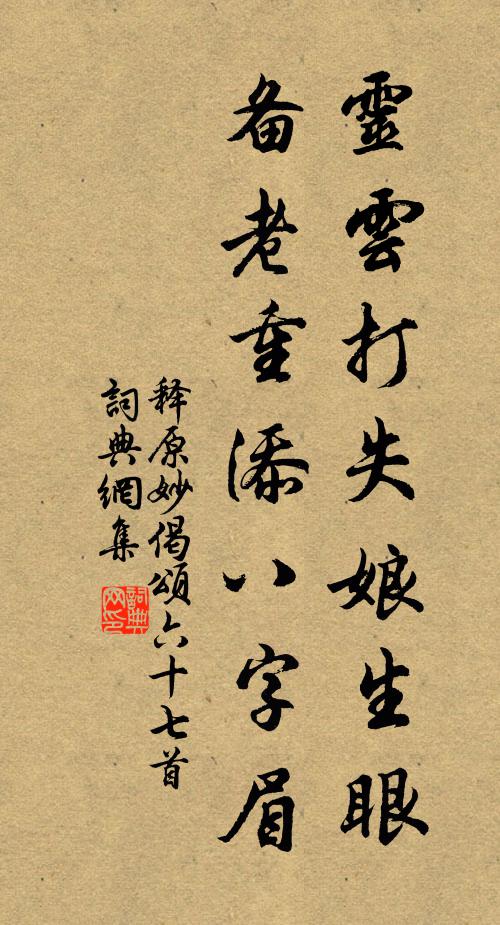 靈雲打失娘生眼
备老重添八字眉
释原妙偈頌六十七首
詞典網集
詞典网印